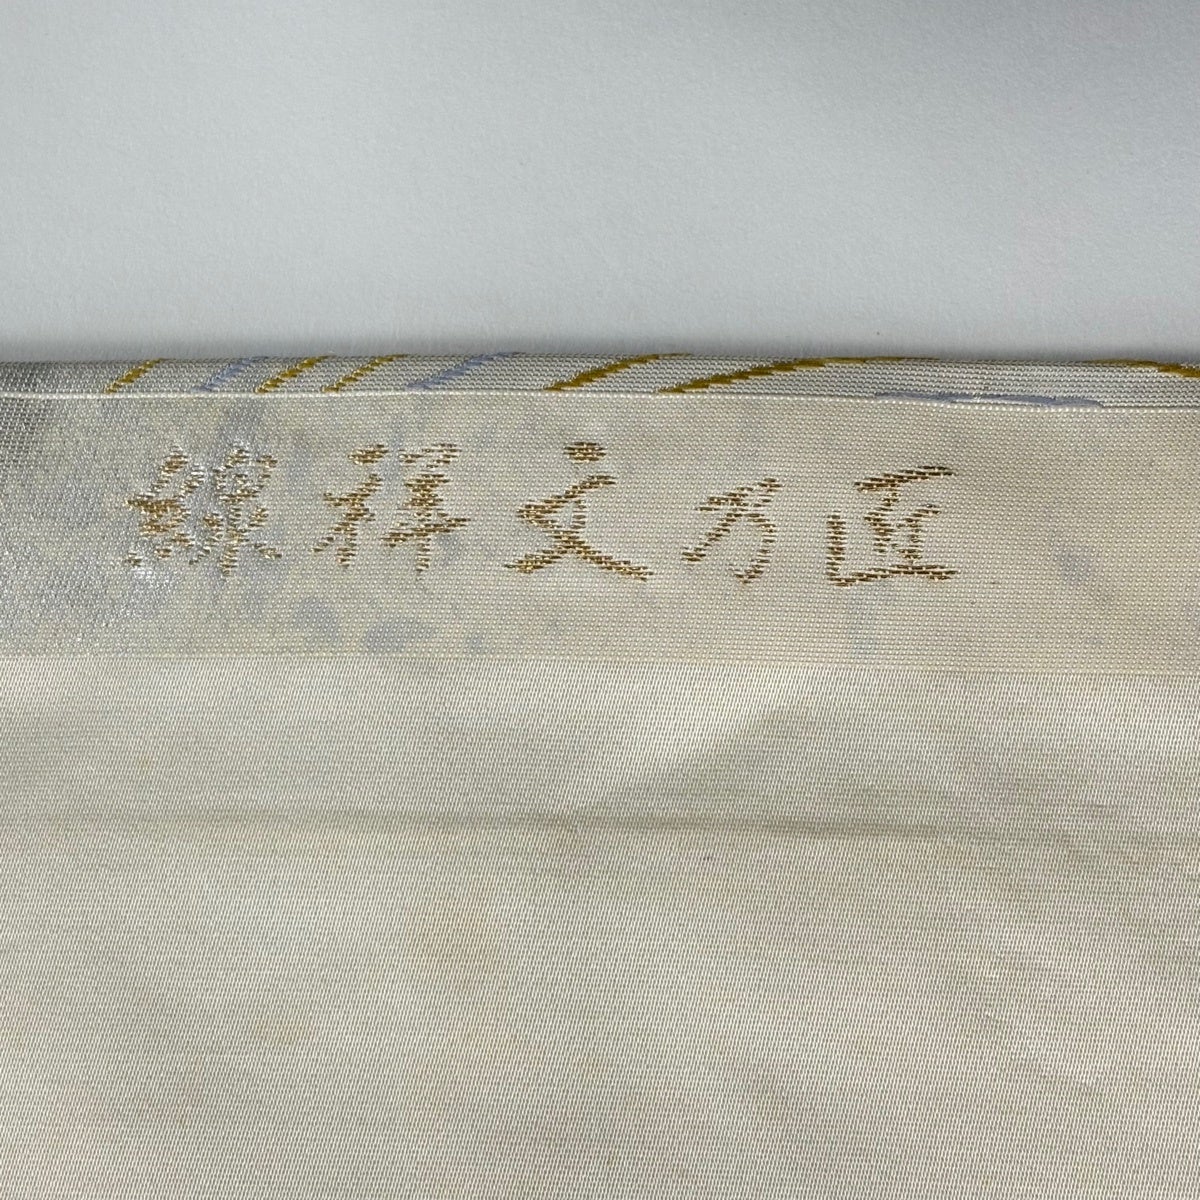 線祥文方匠